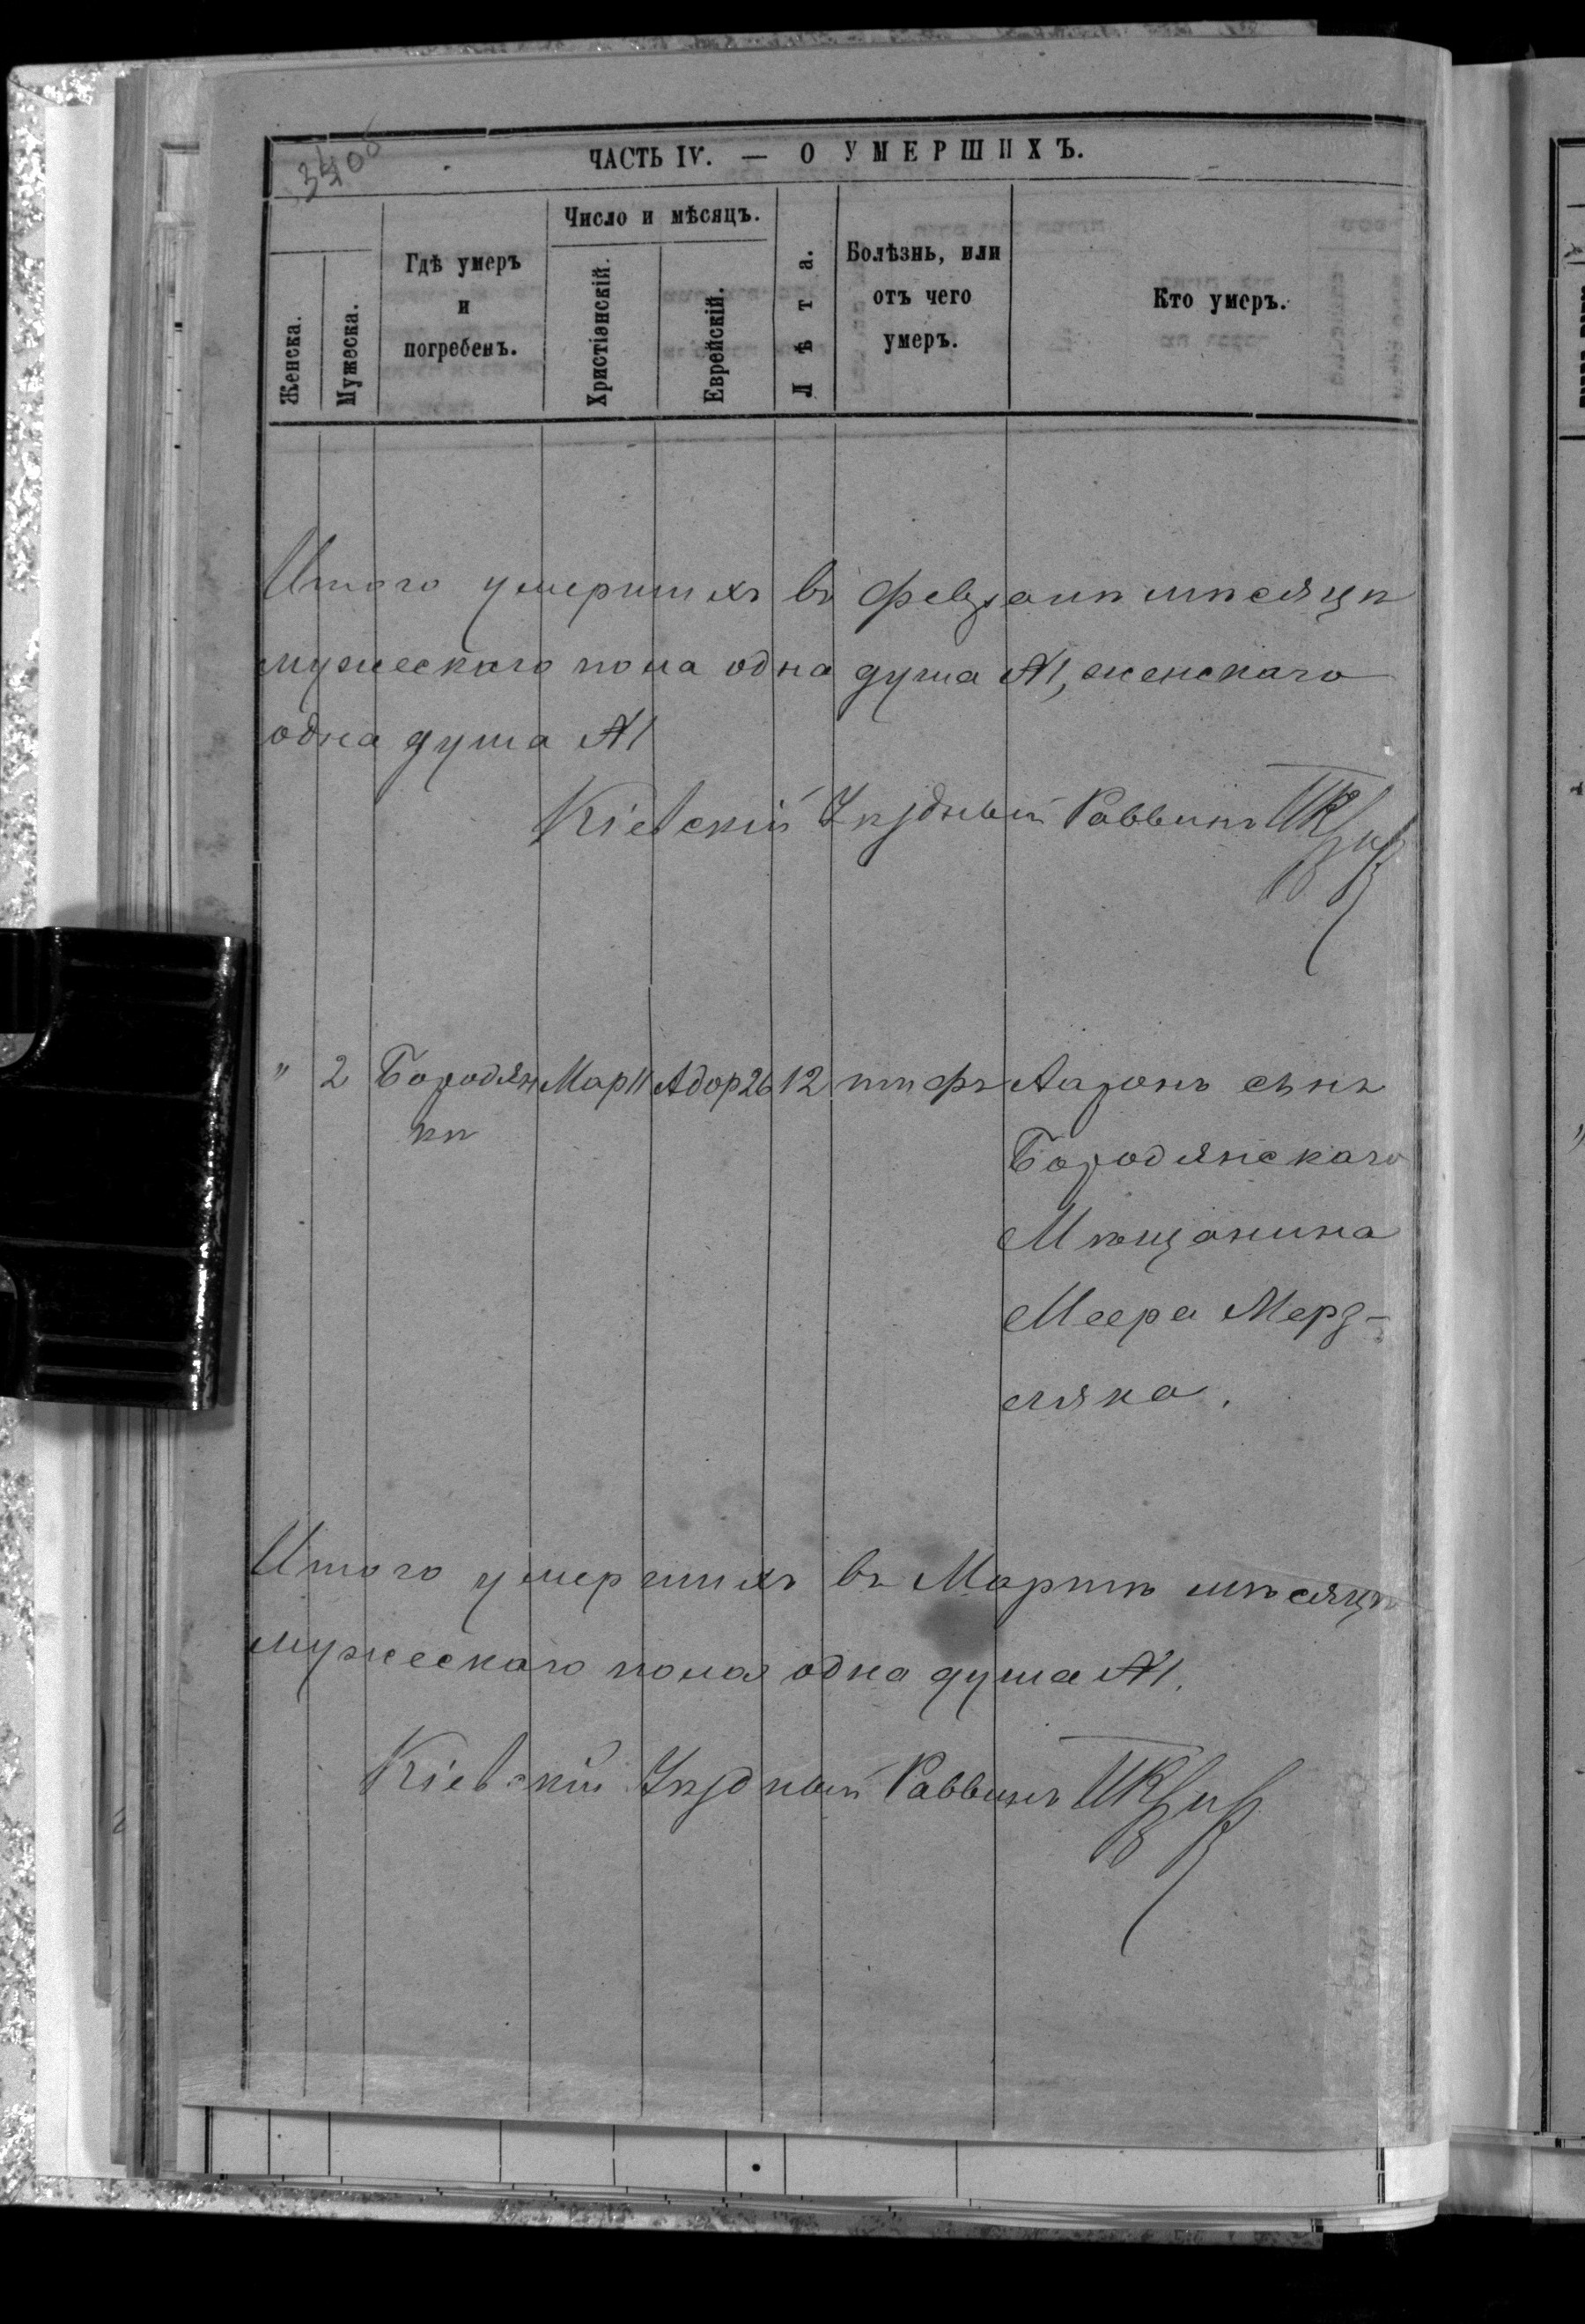 ЧАСТЬ IV. — О УМЕРШИХЪ.
Женска.
Мужеска.
Гдѣ умеръ
и
погребенъ.
Число и мѣсяцъ.
Христіанскій.
Еврейскій.
Лѣта.
Болѣзнь, или
отъ чего
умеръ.
Кто умеръ.
Итого умершихъ въ февралѣ мѣсяцѣ
мужескаго пола одна душа №1, женскаго
одна душа №1
Кіевскій Уѣздный Раввинъ
" 2 Бородян Мар 11 Адор 26 12 тифъ Ааронъ сынъ
кѣ
Бородянскаго
Мѣщанина
Меера Мерз-
ляка.
Итого умершихъ въ Мартѣ мѣсяцѣ
мужескаго пола одна душа №1.
Кіевскій Уѣздный Раввинъ